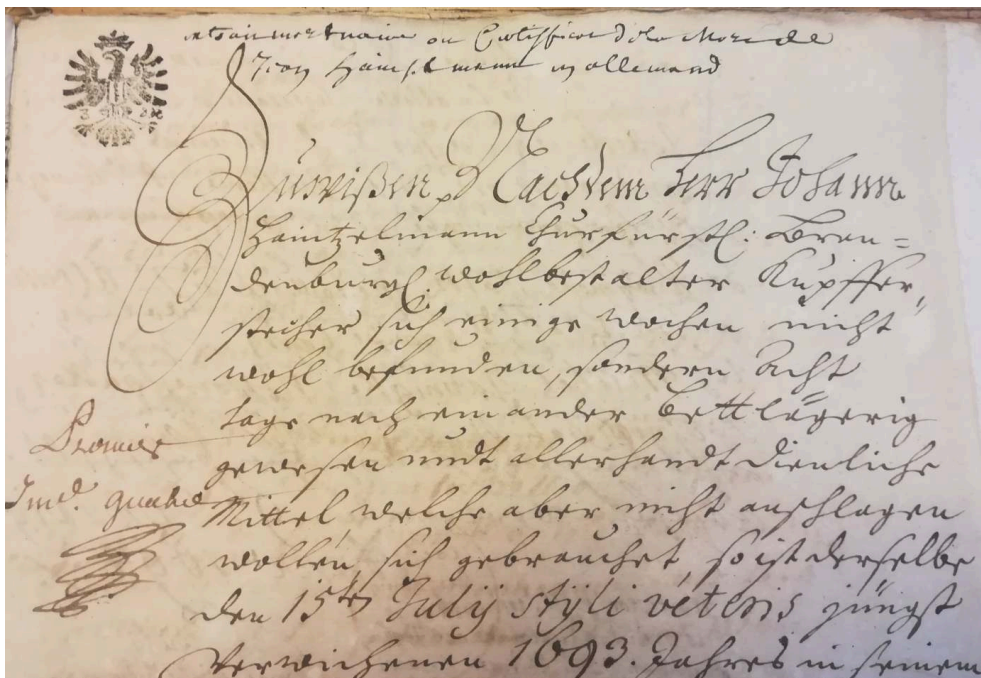 extrait mortuaire ou Certificat de la Mort de
Jean Hainselmann en allemand
Zuwißen, Nachdem Herr Johann
Haintzelmann Churfürstl: Bran=
denburgl. wohlbestalter Kupffer,
stecher sich einige wochen nicht
wohl befunden, sondern Acht
tage nach einander bettlägerig
gewesen undt allerhandt dienliche
Mittel welche aber nicht anschlagen
wollen, sich gebrauchet, so ist derselbe
den 15ten Julij styli veteris jüngst
verwichenen 1693. Jahres in seinem
Premier